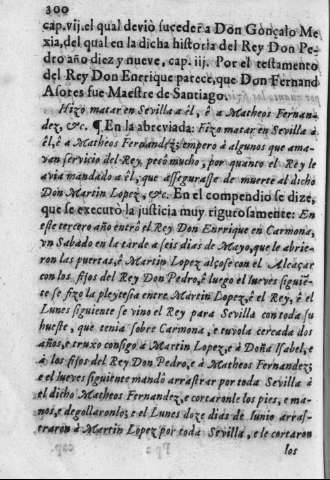 300
cap. vij. el qual deviò suceder à Don Gonçalo Me
xia, del qual en la dicha historia del Rey Don Pe-
dro año diez y nueve, cap. iij. Por el testamento
del Rey Don Enrique parece, que Don Fernand
Asores fue Maestre de Santiago.
Hizo matar en Sevilla a él, è a Matheos Fernan-
dez, &c. ¶ En la abreviada: Fizo matar en Sevilla à
èl, è a Matheos Fernãdez; empero à algunos que ama-
van servicio del Rey, pesò mucho, por quanto el Rey le
avia mandado a èl, que assegurasse de muerte al dicho
Don Martin Lopez, &c. En el compendio se dize,
que se executò la justicia muy rigurosamente: En
este tercero año entrò el Rey Don Enrrique en Carmona,
yn Sabado en la tarde a seis dias de Mayo, que le abrie-
ron las puertas, è Martin Lopez alçose con el Alcaçar
con los fijos del Rey Don Pedro, è luego el Iueves siguiē-
te se fizo la pleytesia entre Martin Lopez, è el Rey, è el
Lunes siguiente se vino el Rey para Sevilla con toda su
hueste, que tenia sobre Carmona, e tuvola cercada dos
años, e truxo consigo à Martin Lopez, e à Doña Isabel, e
à los fijos del Rey Don Pedro, e à Matheos Fernandez;
e el Iueves siguiente mandò arrastrar por toda Sevilla à
el dicho Matheos Fernandez, e cortaronle los pies, e ma-
nos, e degollaronlo; e el Lunes doze dias de Iunio arras-
traron à Martin Lopez por toda Sevilla, e le cortaron
los